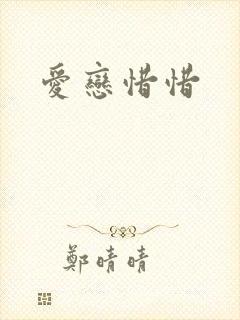 愛戀惜惜
鄭晴晴